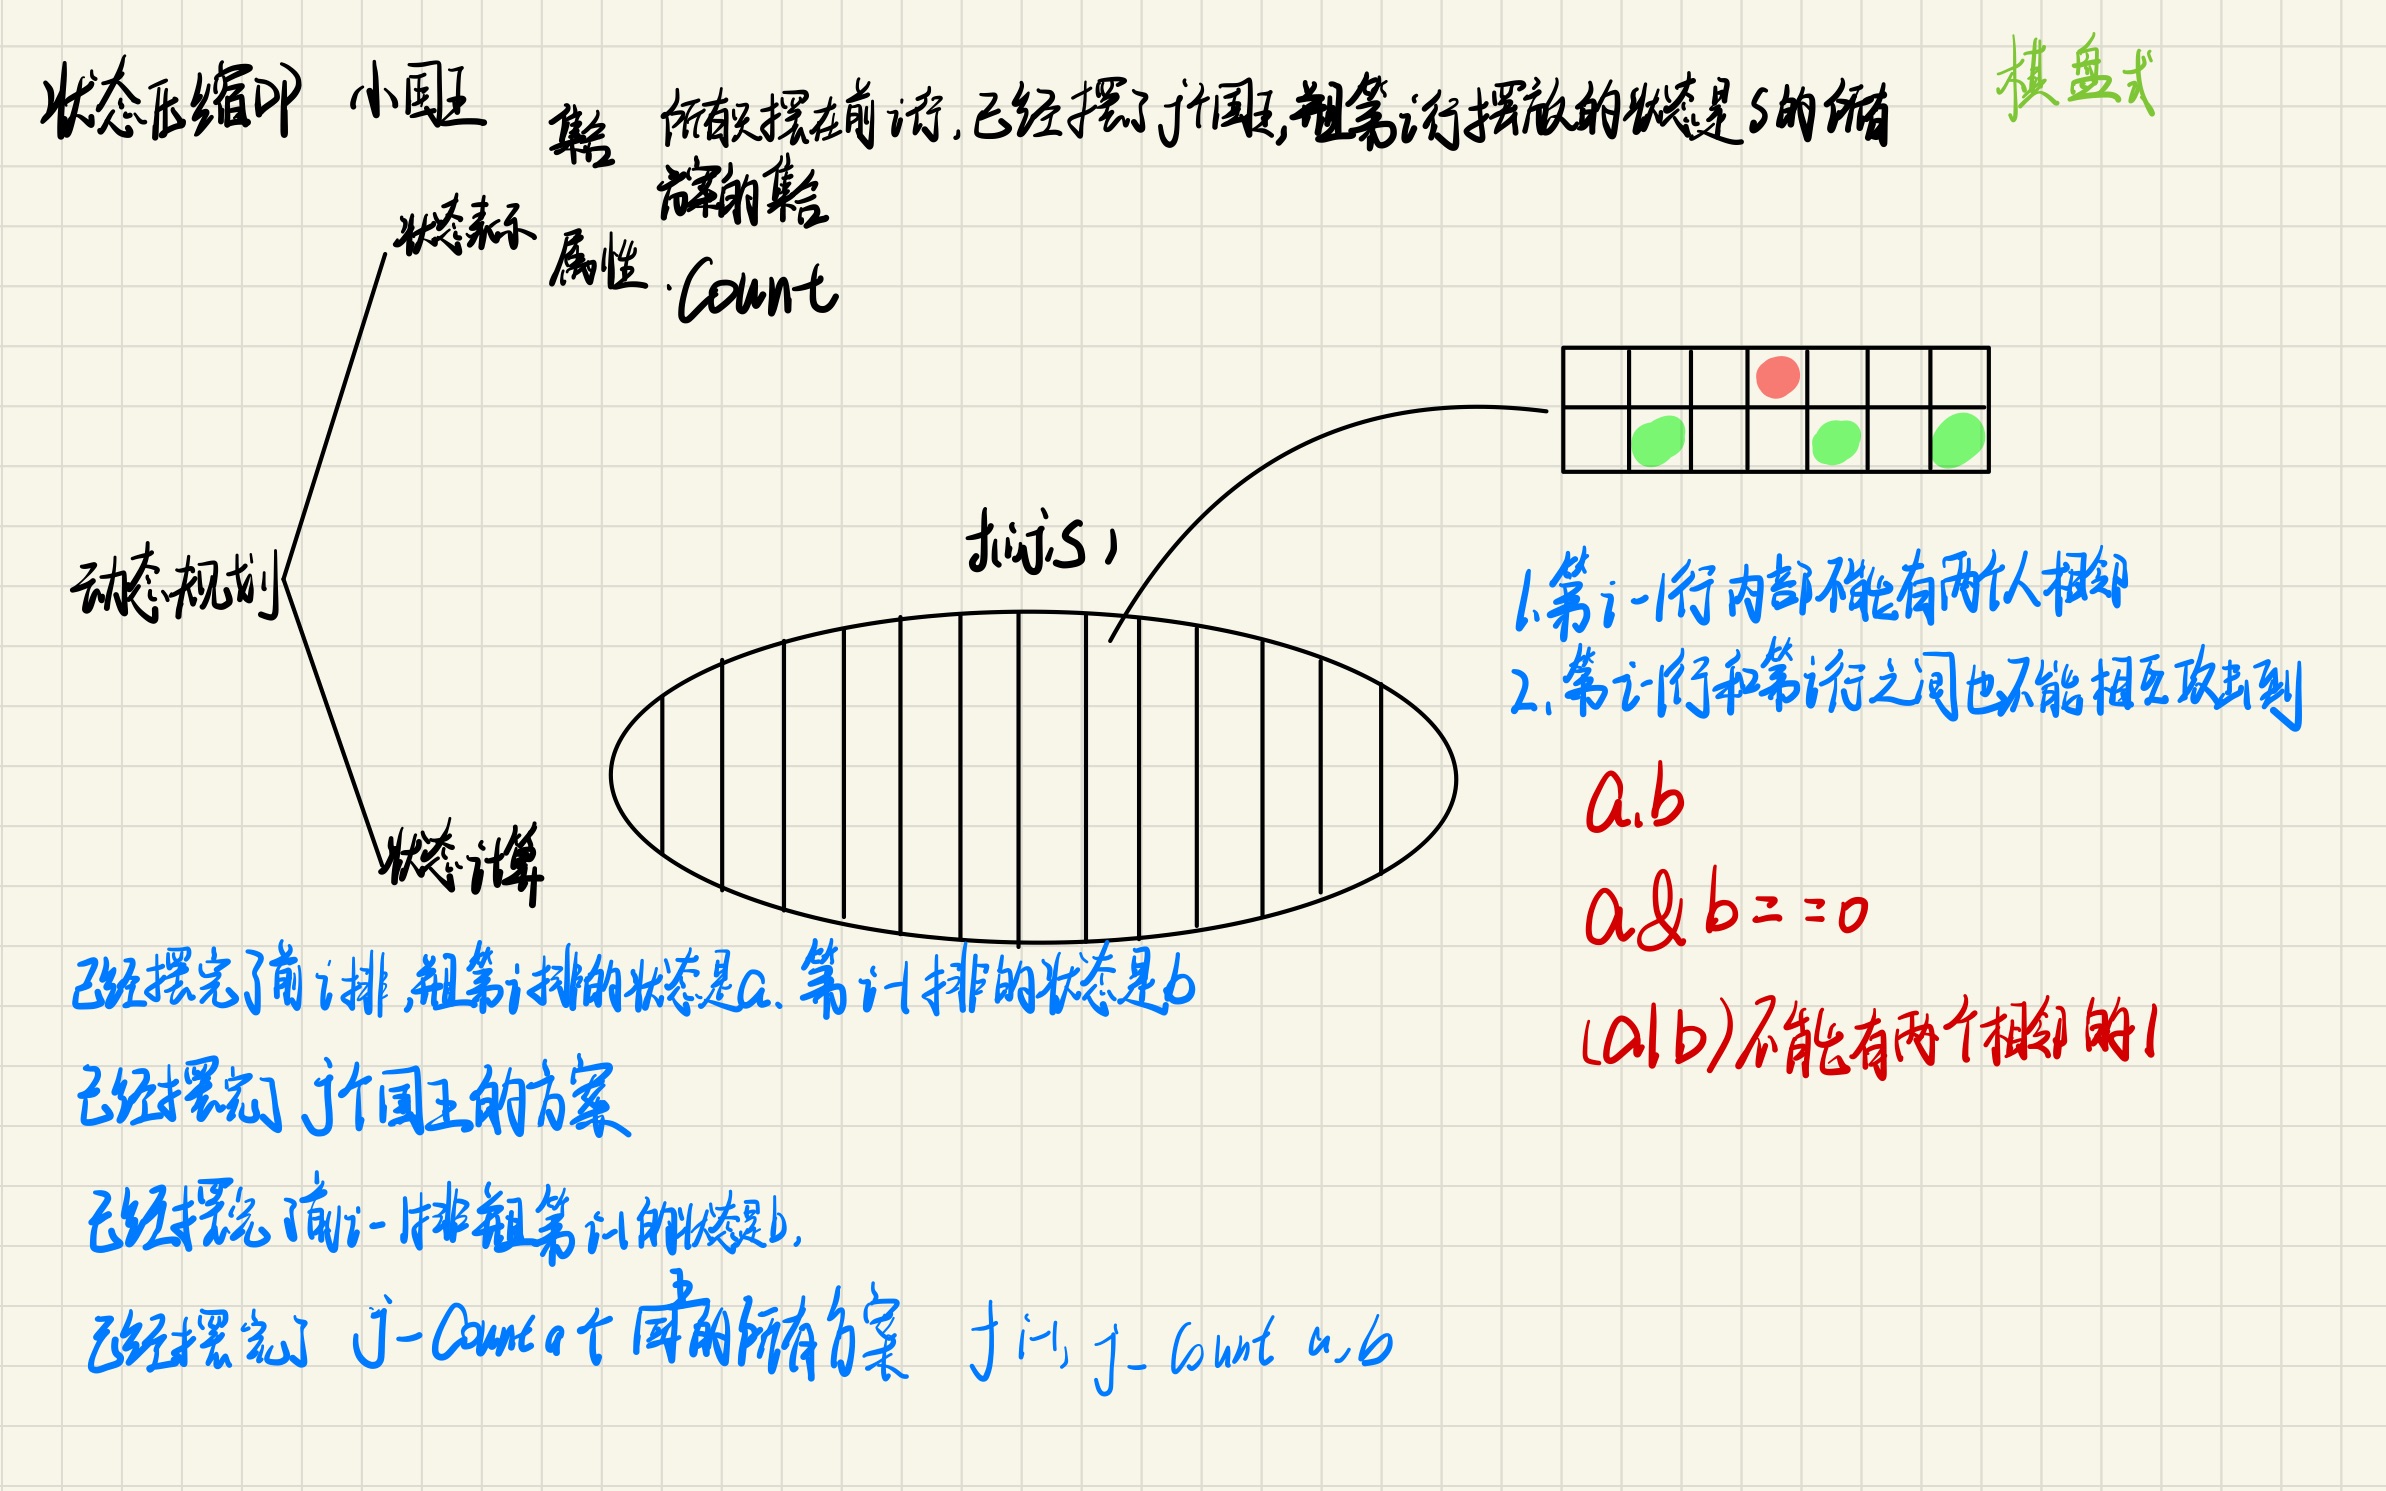 状态压缩DP 小国王
棋盘式
集合 所有只摆在前i行,已经摆了j个国王,并且第i行摆放的状态是s的所有
方案的集合
状态表示
属性. Count
f(i,j,s)
动态规划
1.第i-1行内部不能有两个1相邻
2.第i-1行和第i行之间也不能相互攻击到
a,b
状态计算
a&b==0
已经摆完了前i排,并且第i排的状态是a.第i-1排的状态是b
(a|b)不能有两个相邻的1
已经摆完了j个国王的方案
已经摆完了前i-1排并且第i-1的状态是b,
已经摆完了 j-Count a个国王的所有方案 f i-1, j-Count a,b